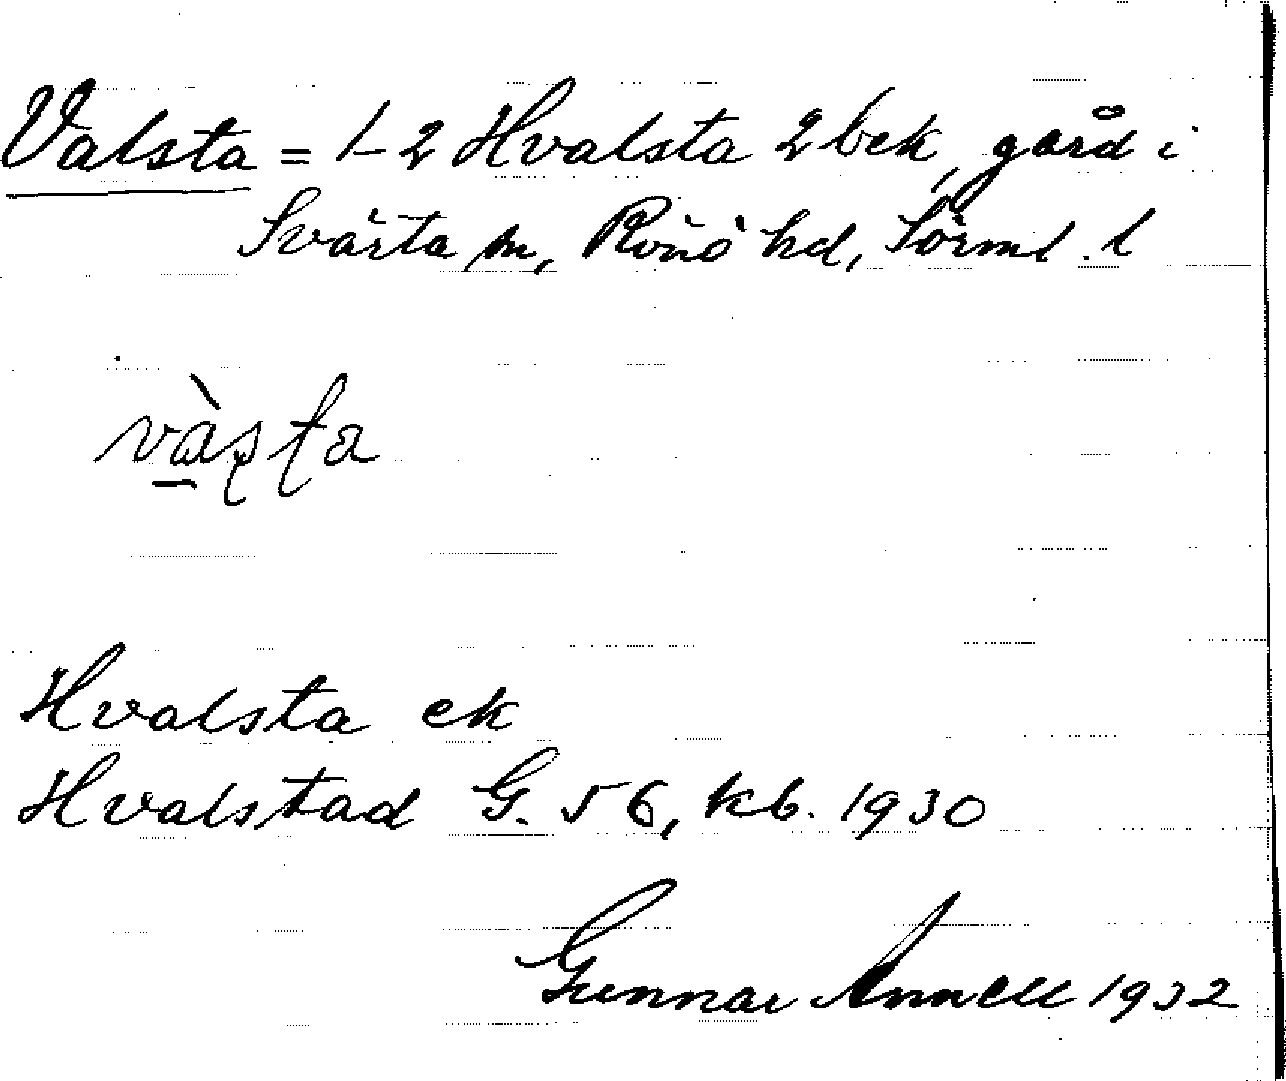 Valsta = 1-2 Hvalsta 2 bek, gård i
Svärta sn, Rönö hd, Sörml. l
Hvalsta ek
Hvalstad G. 56, kb. 1930
Gunnar Annell 1932